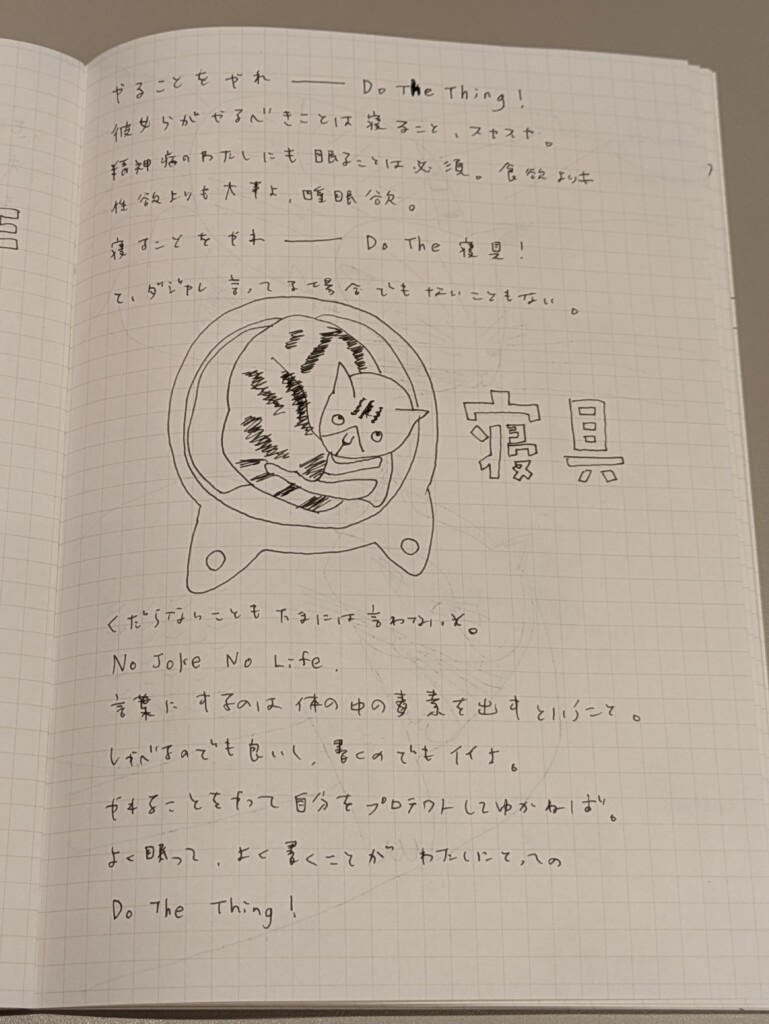 やることをやれ ―― Do The Thing!
彼女らがやるべきことは寝ること、スヤスヤ。
精神病のわたしにも眠ることは必須。食欲よりも
性欲よりも大事よ、睡眠欲。
寝ることをやれ ―― Do The 寝具!
て、ダジャレ言ってる場合でもないこともない。
寝具
くだらないこともたまには言わないと。
No Joke No Life.
言葉にするのは体の中の毒素を出すということ。
しゃべるのでも良いし、書くのでもイイよ。
やれることをやって自分をプロテクトしてゆかねば。
よく眠って、よく書くことがわたしにとっての
Do The Thing!